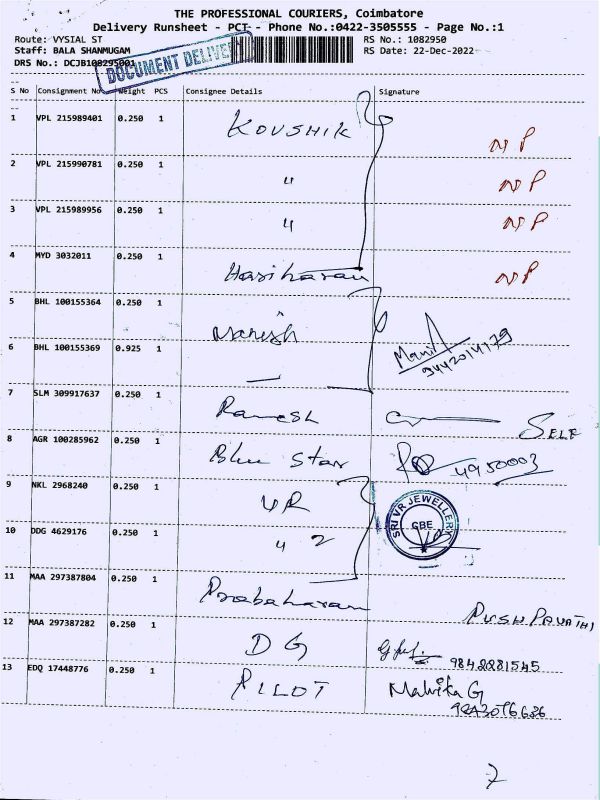 THE PROFESSIONAL COURIERS, Coimbatore
Delivery Runsheet - PCT - Phone No.:0422-3505555 - Page No.:1
Route: VYSIAL ST
RS No.: 1082950
Staff: BALA SHANMUGAM
RS Date: 22-Dec-2022
DRS No.: DCJB108295001
DOCUMENT DELIVERY
S No Consignment No Weight PCS Consignee Details Signature
1 VPL 215989401 0.250 1 KOUSHIK NP
2 VPL 215990781 0.250 1 " NP
3 VPL 215989956 0.250 1 " NP
4 MYD 3032011 0.250 1 Hariharan NP
5 BHL 100155364 0.250 1 Naresh
6 BHL 100155369 0.925 1 — 9442014179
7 SLM 309917637 0.250 1 Ramesh SELF
8 AGR 100285962 0.250 1 Blue Star 4950003
9 NKL 2968240 0.250 1 VR
SRI VR JEWELLERY
GBE
10 DDG 4629176 0.250 1 " 2
11 MAA 297387804 0.250 1 Prabaharan PUSHPAVATHI
12 MAA 297387282 0.250 1 DG 9842281545
13 EDQ 17448776 0.250 1 PILOT Malvika G
7